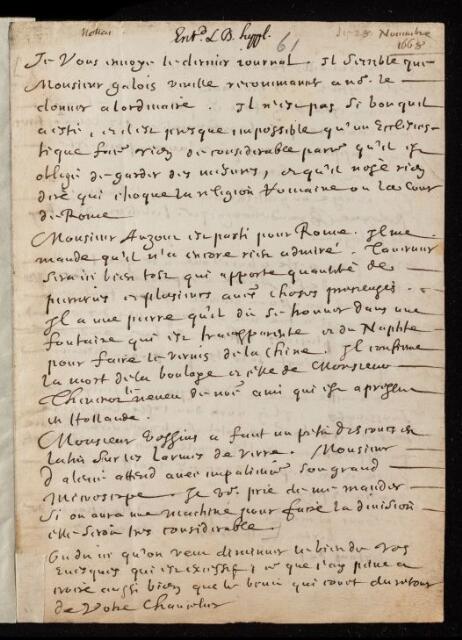 Entd L.B. Suppl.
61
le 28 Novembre
1668
Je Vous envoye le dernier Journal. Il semble que
Monsieur galois vueille recommancer a nous le
donner a lordinaire. Il n'est pas si bon quil
a esté, et il est presque impossible qu'un Ecclesias-
tique face rien de considerable parce qu'il est
obligé de garder des mesures, et qu'il n'ose rien
dire qui choque la religion Romaine ou la Cour
de Rome
Monsieur Auzout est parti pour Rome. Il me
mande qu'il n'a encore rien admiré. Tavernier
sera ici bien tost qui apporte quantité de
pierreries et plusieurs autres choses
Il a une pierre qu'il dit se trouver dans une
fontaine qui est transparente et du Naphte
pour faire le vernis de la Chine. Il confirme
la mort de la boulaye et celle de Monsieur
Thevenot le neveu de nostre ami qui est a present
en Hollande.
Monsieur Vossius a faict un petit discours en
latin sur les larmes de verre. Monsieur
d'alencé attend avec impatience son grand
Microscope. Je vous prie de me mander
si on aura une machine pour faire la division
elle seroit tres considerable.
On dit ici qu'on veut diminuer le bien de vos
Evesques qui est excessif, ce que j'ay peine a
croire aussi bien que le bruit qui court du retour
de Vostre Chancelier